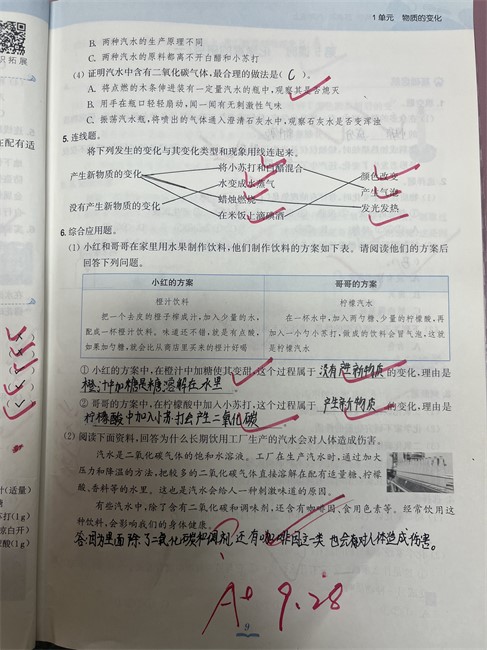 1单元 物质的变化
识拓展
B. 两种汽水的生产原理不同
C. 两种汽水的原料都离不开白醋和小苏打
(4) 证明汽水中含有二氧化碳气体,最合理的做法是( C )。
A. 将点燃的木条伸进装有一定量汽水的瓶中,观察其是否熄灭
B. 用手在瓶口轻轻扇动,闻一闻有无刺激性气味
C. 振荡汽水瓶,将喷出的气体通入澄清石灰水中,观察石灰水是否变浑浊
5. 连线题。
在配有适
将下列发生的变化与其变化类型和现象用线连起来。
将小苏打和白醋混合
产生新物质的变化
颜色改变
水变成水蒸气
产生气泡
蜡烛燃烧
没有产生新物质的变化
发光发热
在米饭上滴碘酒
6. 综合应用题。
(1) 小红和哥哥在家里用水果制作饮料,他们制作饮料的方案如下表。请阅读他们的方案后
回答下列问题。
小红的方案 哥哥的方案
橙汁饮料 柠檬汽水
把一个去皮的橙子榨成汁,加入少量的水,
配成一杯橙汁饮料。味道还不错,就是有点酸,
如果加勺糖,就会比从商店里买来的橙汁好喝
在一杯水中,加入两勺糖、少量的柠檬酸,再
加入一小勺小苏打,做成的饮料会冒气泡,这就
是柠檬汽水
① 小红的方案中,在橙汁中加糖使其变甜,这个过程属于 没有产生新物质 的变化,理由是
橙汁中加糖是糖溶解在水里
② 哥哥的方案中,在柠檬酸中加入小苏打,这个过程属于 产生新物质 的变化,理由是
柠檬酸中加入小苏打会产生二氧化碳
(2) 阅读下面资料,回答为什么长期饮用工厂生产的汽水会对人体造成伤害。
汽水是二氧化碳气体的饱和水溶液。工厂在生产汽水时,通过加大
压力和降温的方法,把较多的二氧化碳气体直接溶解在配有适量糖、柠檬
酸、香料等的水里。这也是汽水会给人一种刺激味道的原因。
有些汽水中,除了含有二氧化碳和调味剂,还含有咖啡因、食用色素等。经常饮用这
种饮料,会影响我们的身体健康。
答:因为里面除了二氧化碳和调剂,还有咖啡因之类 也会对人体造成伤害。
计(适量)
糖
打(1g)
凉白开)
酸(1g)
A+ 9.28
9